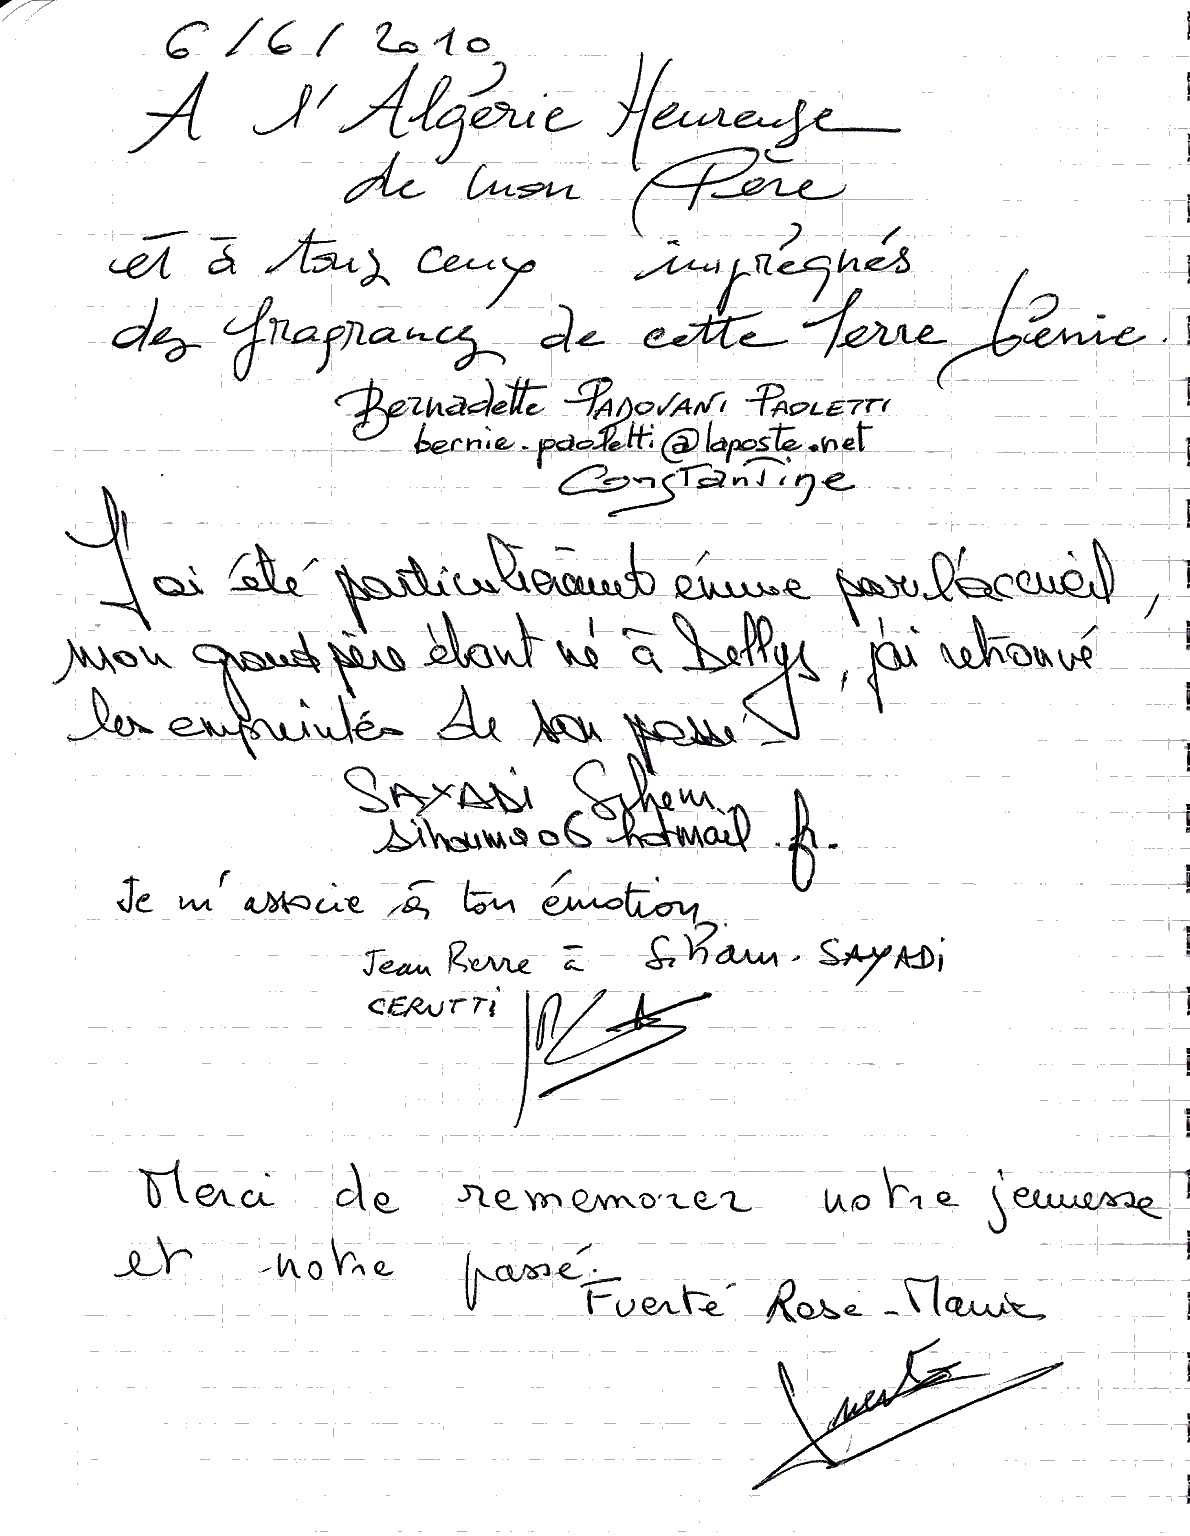 6/6/2010
A l'Algérie Heureuse
de mon Père
et à tous ceux imprégnés
des fragrances de cette Terre bénie.
Bernadette PADOVANI PAOLETTI
bernie.paoletti@laposte.net
Constantine
J'ai été particulièrement émue par l'accueil,
mon grand père étant né à Dellys, j'ai retrouvé
les empreintes de son passé.
SAYADI Sihem
hotmail.fr.
Je m'associe à ton émotion
Jean Pierre à Siham. SAYADI
CERUTTI
Merci de rememorer notre jeunesse
et notre passé.
Fuerté Rose-Marie